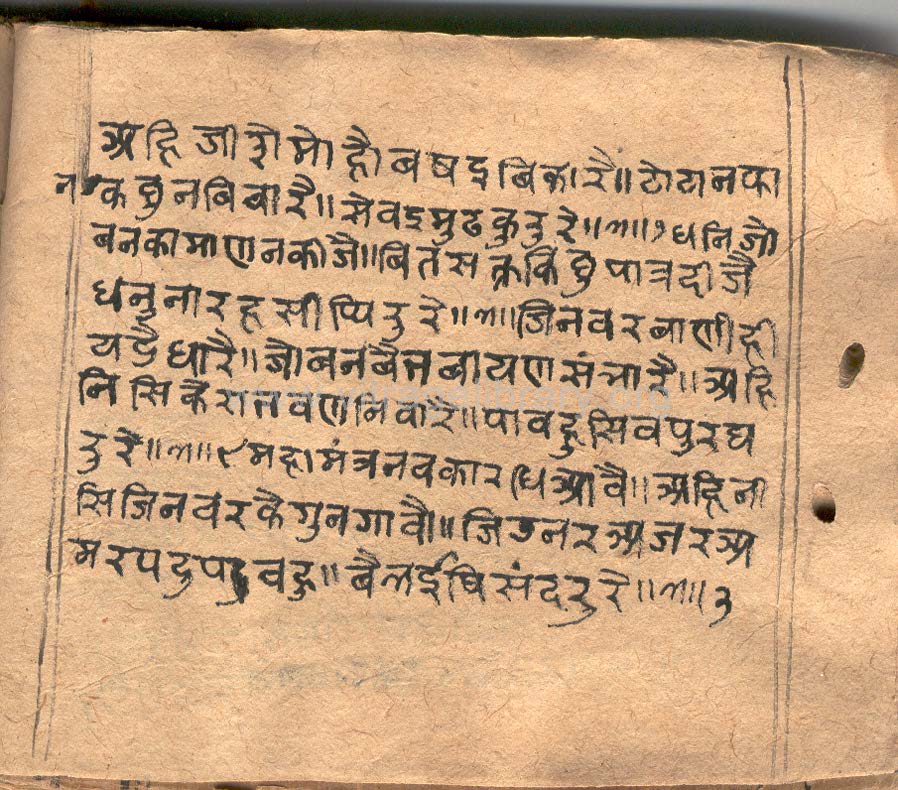 अहि जी रो मो हो बषइ बिकारै॥ ठोठानका
न कछु न बिचारै॥ सेवइ मुढ कुरु रे॥ ॥१ धनि जौ
बन का माण न कीजै॥ बित सक्त किछु पात्र दीजै
धनु नारह सीप्पिरु रे॥ ॥ जिनवर बाणी ही
यडै धारै॥ जौबन बैन बायण संभारै॥ अहि
निसि कै राज वण निवारै॥ पावहु सिवपुर घ
रु रे॥ ॥९ महा मंत्र नवकार धिआवै॥ अहि नी
सि जिनवर कै गुन गावौ॥ जिउ नर अजर अ
मर पदु पावहु॥ बैलई षि संदरु रे॥ ॥३